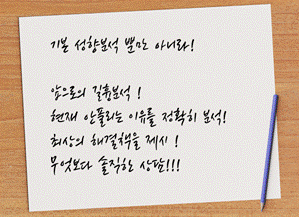 기본 성향분석 뿐만 아니라!
앞으로의 길흉분석 !
현재 안풀리는 이유를 정확히 분석!
최상의 해결책을 제시 !
무엇보다 솔직한 상담!!!